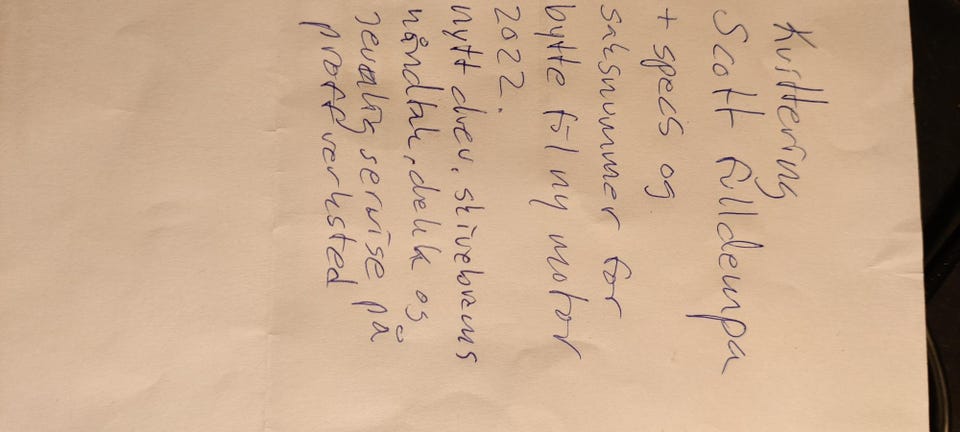 Kvittering
Scott fulldempa
+ specs og
saksnummer for
bytte til ny motor
2022.
nytt drev, skivebrems
håndtak, dekk og
jevnlig servise på
proffverksted